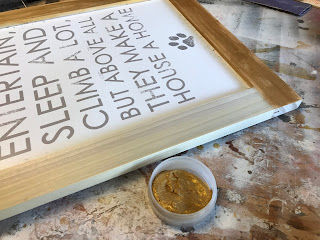 ENTERTAIN,
SLEEP AND
CLIMB A LOT,
BUT ABOVE ALL
THEY MAKE A
HOUSE A HOME